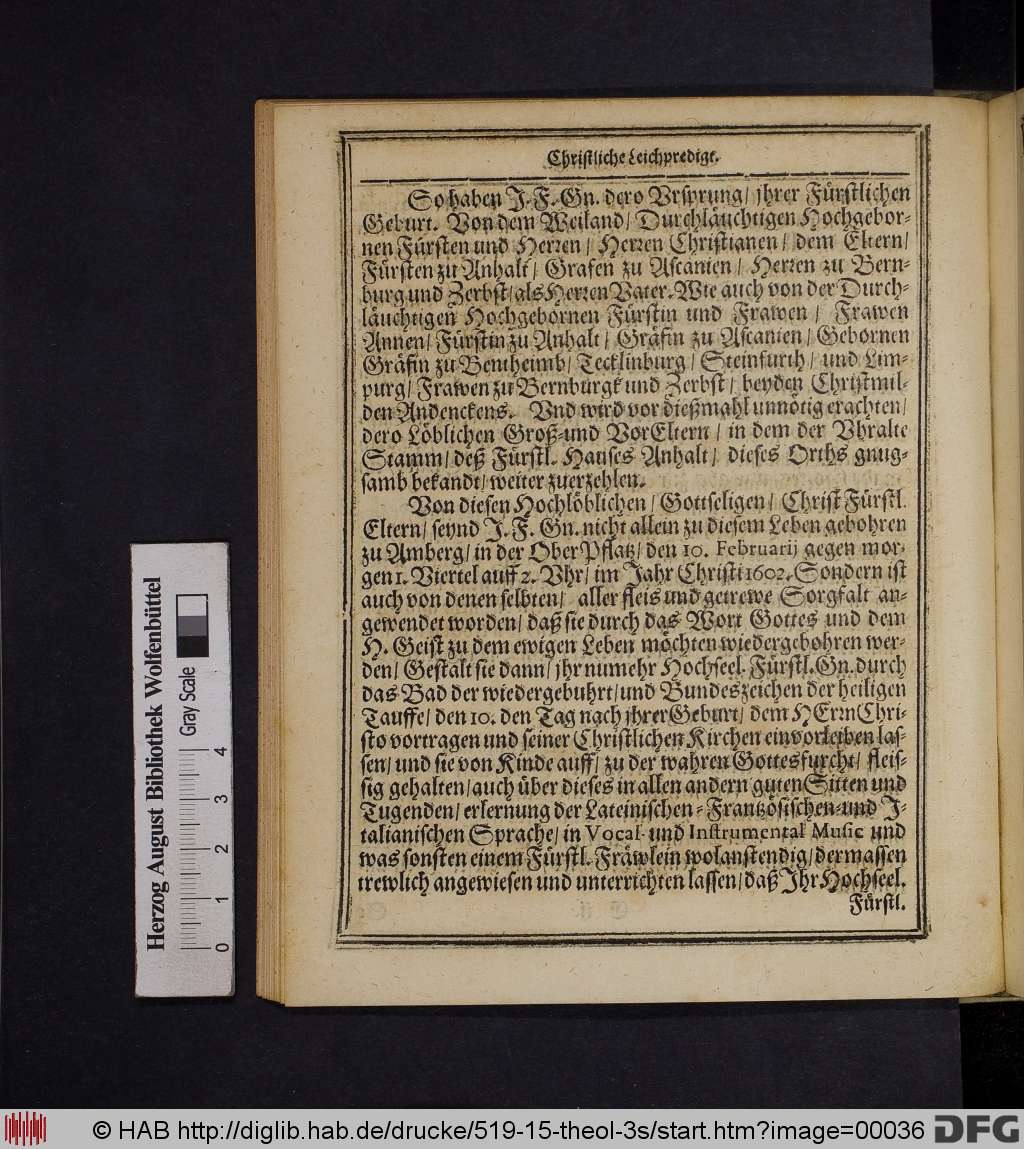 Christliche Leichpredigt.
So haben J. F. Gn. dero Vrsprung/ jhrer Fürstlichen
Geburt. Von dem Weiland/ Durchläuchtigen Hochgebor-
nen Fürsten und Herren/ Herren Christianen/ dem Eltern/
Fürsten zu Anhalt/ Grafen zu Ascanien/ Herren zu Bern-
burg und Zerbst/ als Herren Vater. Wie auch von der Durch-
läuchtigen Hochgebornen Fürstin und Frawen/ Frawen
Annen/ Fürstin zu Anhalt/ Gräfin zu Ascanien/ Gebornen
Gräfin zu Bentheimb/ Tecklinburg/ Steinfurth/ und Lim-
purg/ Frawen zu Bernburgk und Zerbst/ beyden Christmil-
den Andenckens. Vnd wird vor dießmahl unnötig erachten/
dero Löblichen Groß-und VorEltern/ in dem der Vhralte
Stamm/ deß Fürstl. Hauses Anhalt/ dieses Orths gnug-
samb bekandt/ weiter zuerzehlen.
Von diesen Hochlöblichen/ Gottseligen/ Christ Fürstl.
Eltern/ seynd J. F. Gn. nicht allein zu diesem Leben gebohren
zu Amberg/ in der OberPflatz/ den 10. Februarij gegen mor-
gen 1. Viertel auff 2. Vhr/ im Jahr Christi 1602. Sondern ist
auch von denen selbten/ aller fleis und getrewe Sorgfalt an-
gewendet worden/ daß sie durch das Wort Gottes und dem
H. Geist zu dem ewigen Leben möchten wiedergebohren wer-
den/ Gestalt sie dann/ jhr numehr Hochseel. Fürstl. Gn. durch
das Bad der wiedergebuhrt/ und Bundeszeichen der heiligen
Tauffe/ den 10. den Tag nach jhrer Geburt/ dem HErrn Chri-
sto vortragen und seiner Christlichen Kirchen einvorleiben las-
sen/ und sie von Kinde auff/ zu der wahren Gottesfurcht/ fleis-
sig gehalten/ auch über dieses in allen andern guten Sitten und
Tugenden/ erlernung der Lateinischen- Frantzösischen-und J-
talianischen Sprache/ in Vocal- und Instrumental Music und
was sonsten einem Fürstl. Fräwlein wolanstendig/ dermassen
trewlich angewiesen und unterrichten lassen/ daß Jhr Hochseel.
Fürstl.
Herzog August Bibliothek Wolfenbüttel
Gray Scale
0 1 2 3 4
© HAB http://diglib.hab.de/drucke/519-15-theol-3s/start.htm?image=00036
DFG